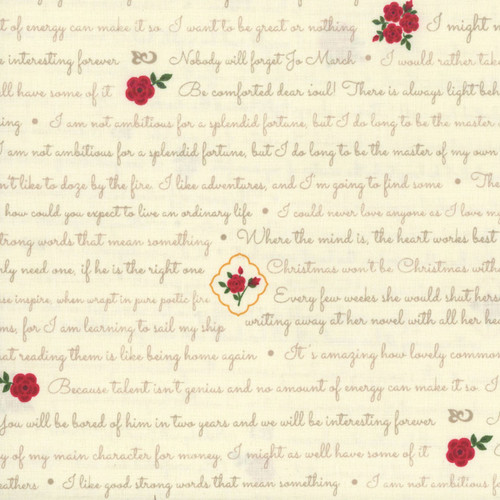 t of energy can make it so. I want to be great or nothing I might n
s interesting forever Nobody will forget Jo March • I would rather take
ll have some of it Be comforted dear soul! There is always light beh
ing • I am not ambitious for a splendid fortune, but I do long to be the master
I am not ambitious for a splendid fortune, but I do long to be the master of my own
n't like to doze by the fire. I like adventures, and I'm going to find some • The
how could you expect to live an ordinary life • I could never love anyone as I love m
strong words that mean something • Where the mind is, the heart works best
nly need one, if he is the right one Christmas won't be Christmas with
se inspire, when wrapt in pure poetic fire Every few weeks she would shut hers
ms, for I am learning to sail my ship writing away at her novel with all her hea
at reading them is like being home again • It's amazing how lovely common
Because talent isn't genius and no amount of energy can make it so. I
You will be bored of him in two years and we will be interesting forever N
y of my main character for money, I might as well have some of it
eathers • I like good strong words that mean something • I am not ambitious f